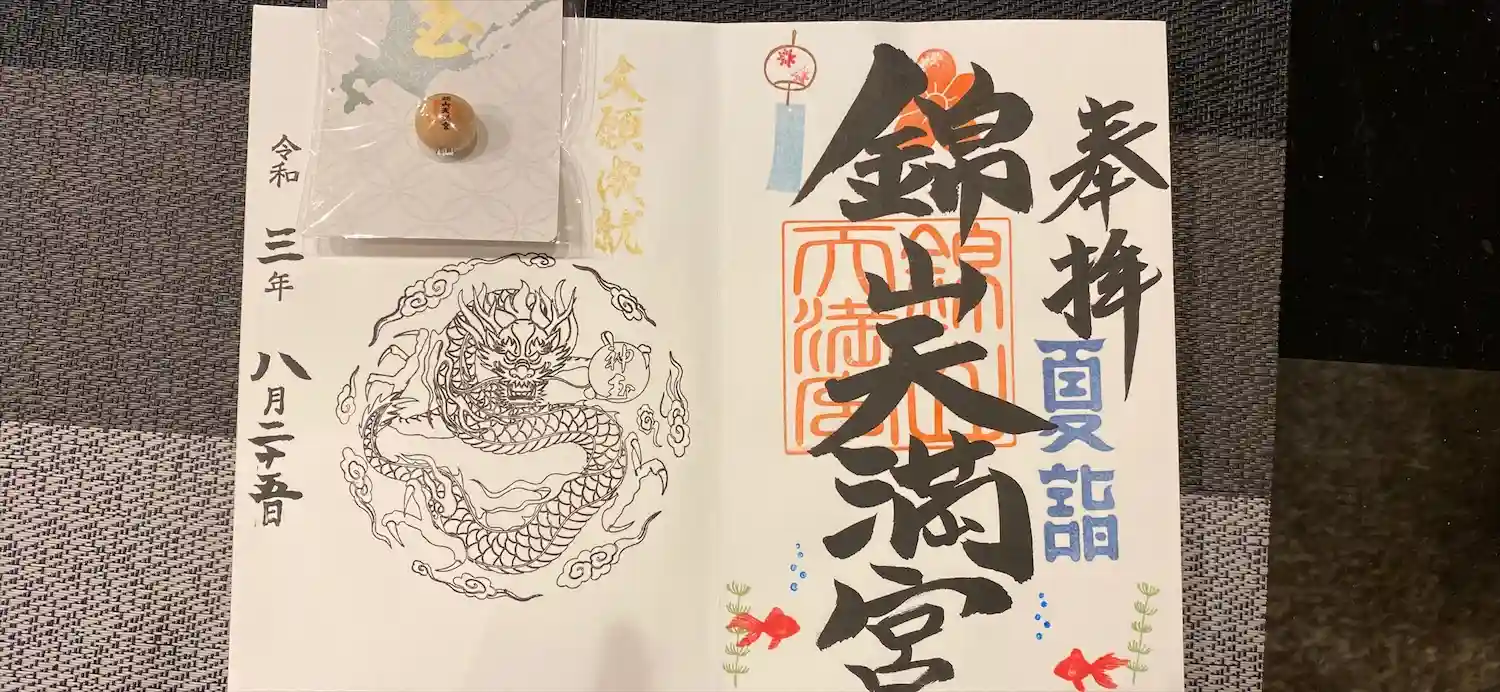 奉拝
夏詣
錦山天満宮
錦山
天満宮
大願成就
神玉
玉
令和三年八月二十五日